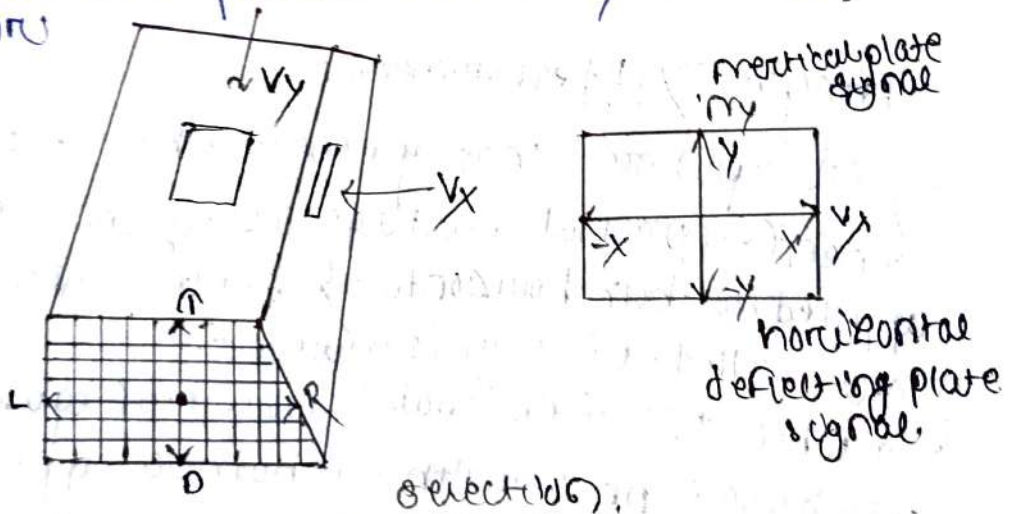 Vy
Vx
vertical plate
signal
Vy
y
-x
x
Vx
-y
horizontal
deflecting plate
signal.
L
R
D